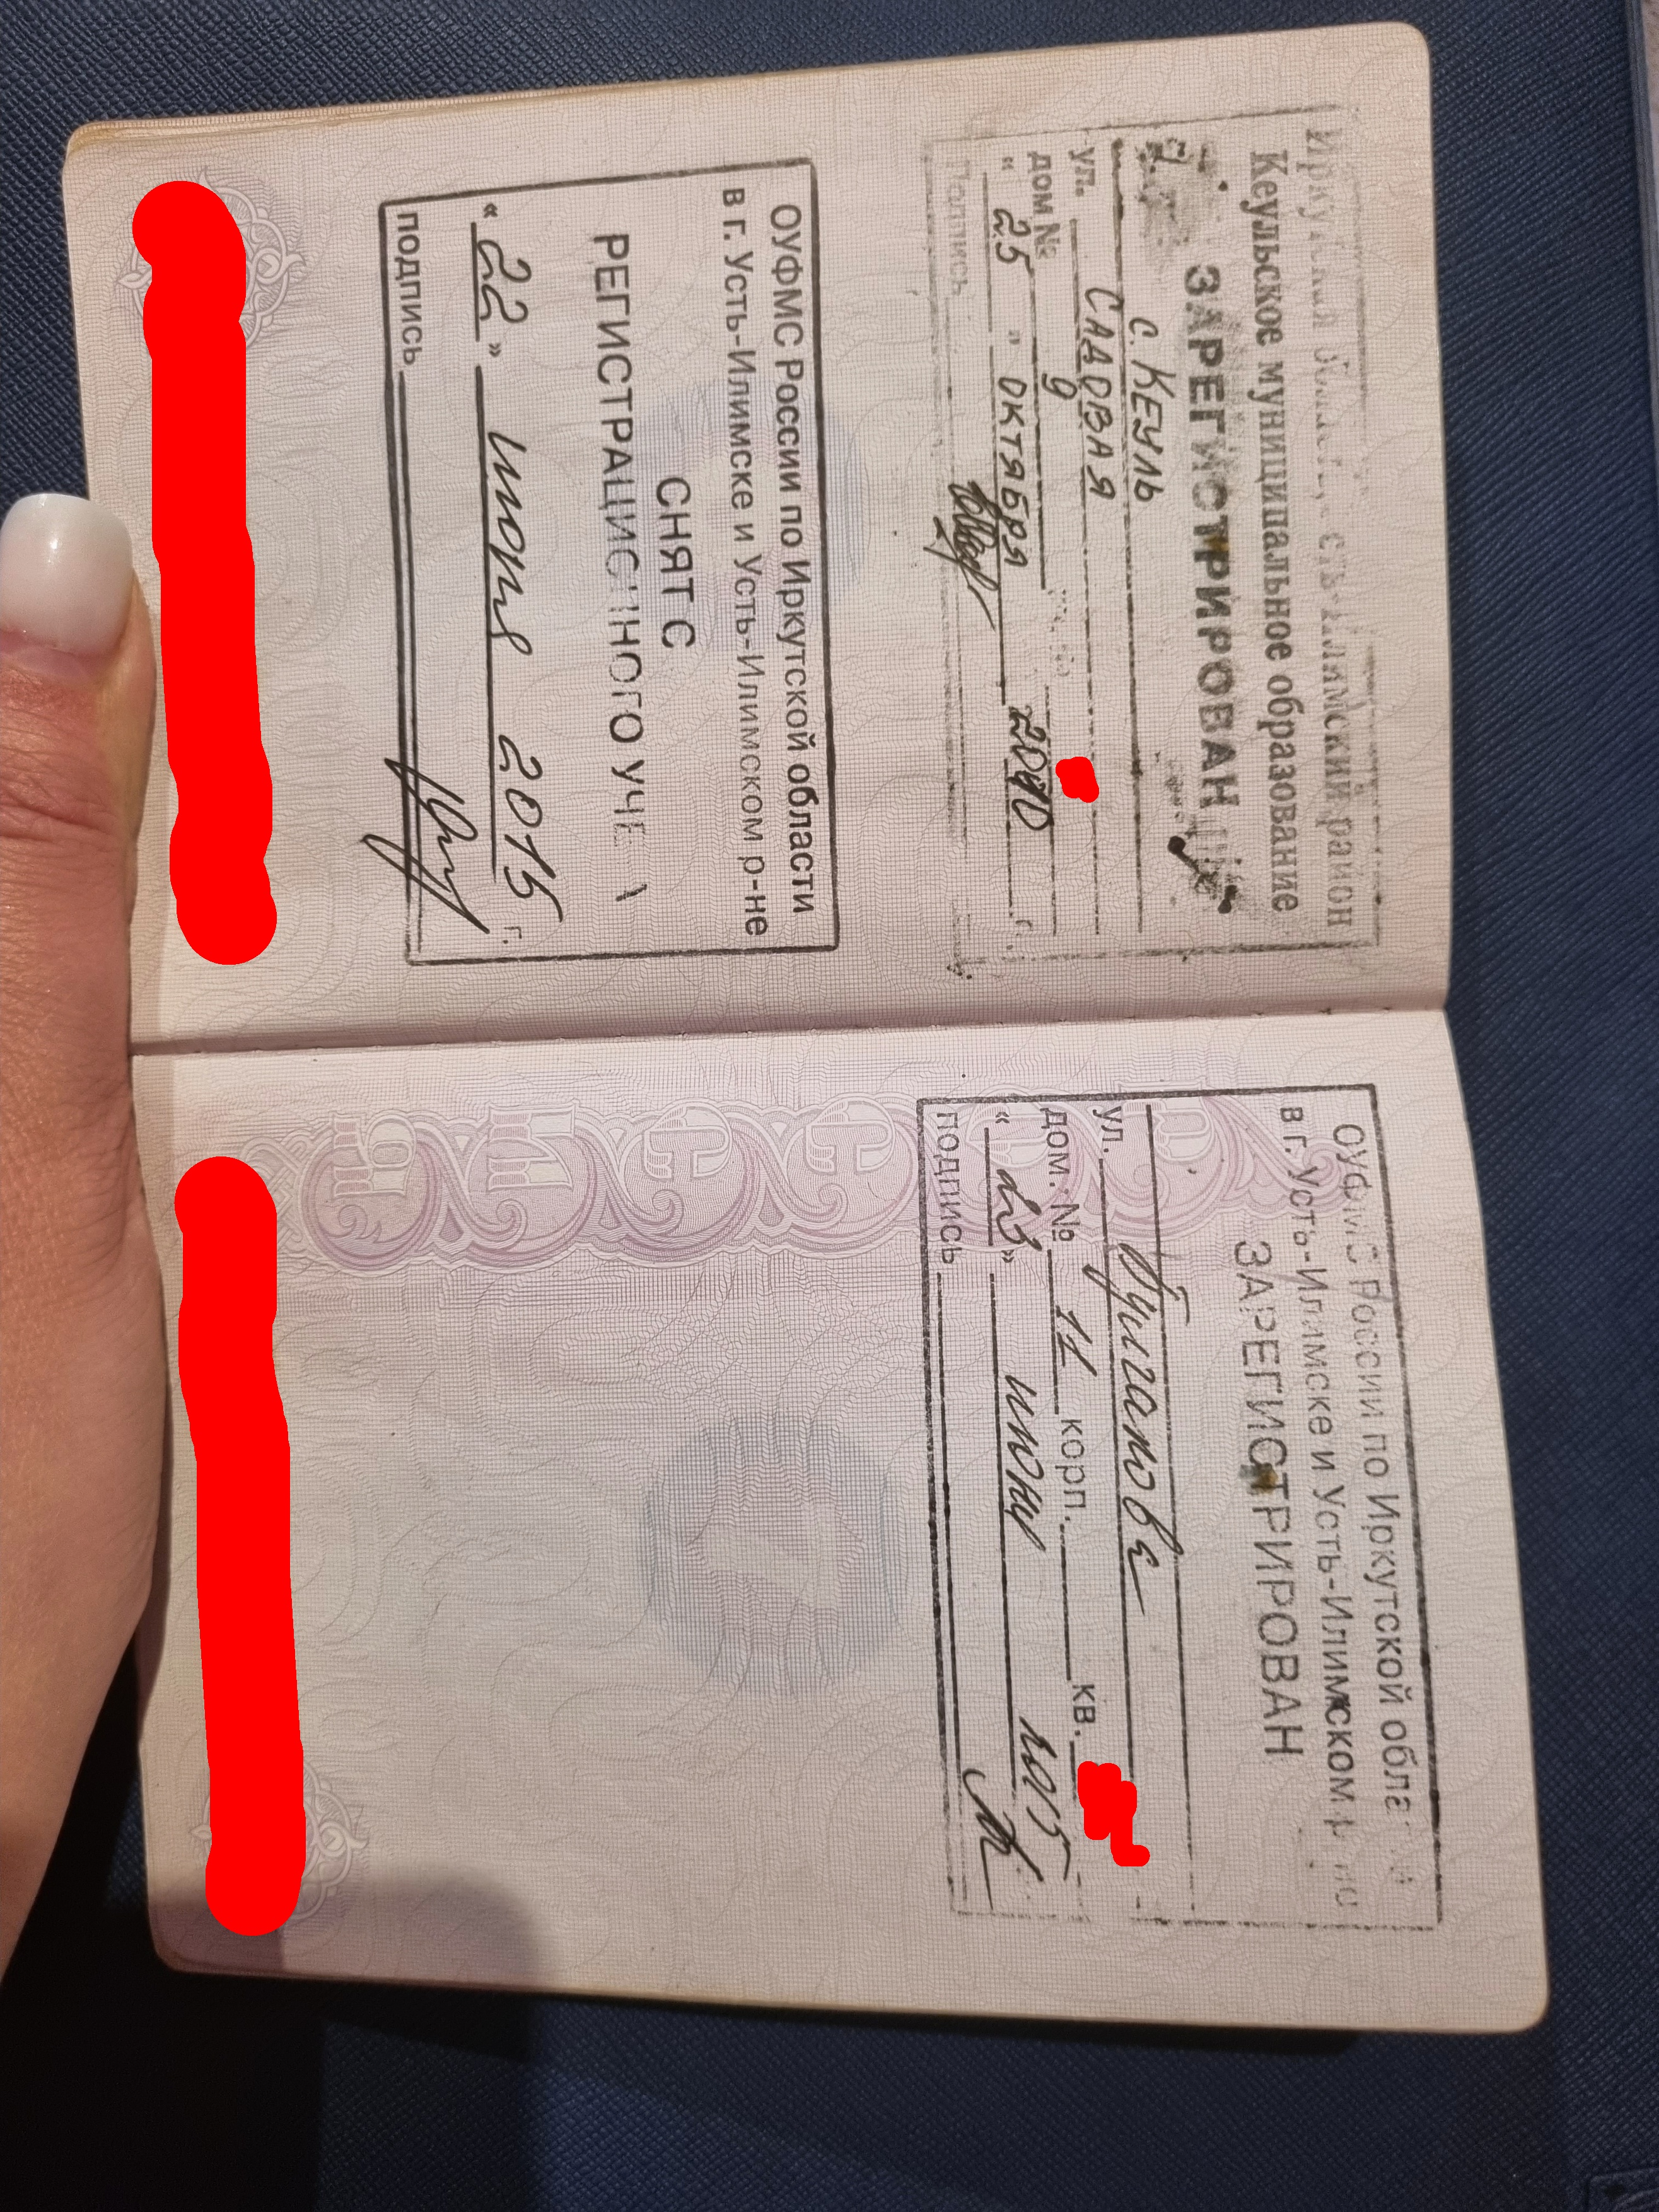 Иркутская область, Усть-Илимский район
Кеульское муниципальное образование
ЗАРЕГИСТРИРОВАН
с. КЕУЛЬ
ул. САДОВАЯ
дом № 9
" 25 " ОКТЯБРЯ 2010 г.
Подпись
ОУФМС России по Иркутской области
в г. Усть-Илимске и Усть-Илимском р-не
СНЯТ С
РЕГИСТРАЦИОННОГО УЧЕ
« 22 » июня 2015 г.
подпись
ОУФМС России по Иркутской обла
в г. Усть-Илимске и Усть-Илимском р
ЗАРЕГИСТРИРОВАН
ул.
дом. № 11 корп. кв.
« 23 » июня 2015
подпись